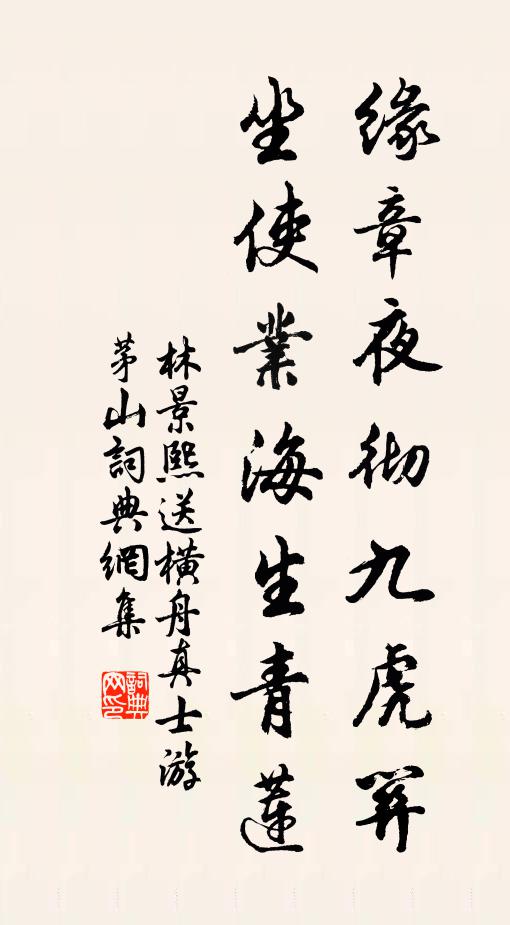 緣章夜彻九虎関
坐使業海生青蓮
林景熙送橫舟真士游
茅山詞典網集
詞典
网印